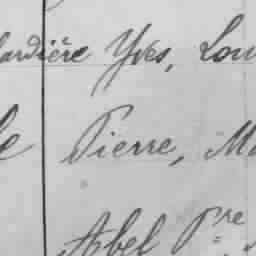 lardière Yves, Lou
le Pierre, Ma
Abel Pre